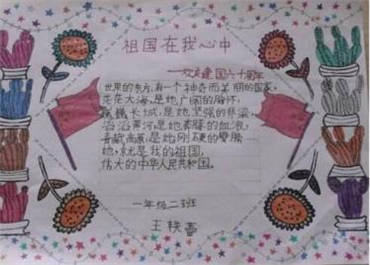 祖国在我心中
——欢庆建国六十周年
世界的东方,有一个神奇而美丽的国家,
茫茫大海,是她广阔的胸怀,
巍巍长城,是她坚强的脊梁,
滔滔黄河,是她沸腾的血液,
青藏高原,是她刚硬的臂膀
她,就是我的祖国,
伟大的中华人民共和国。
一年级二班
王